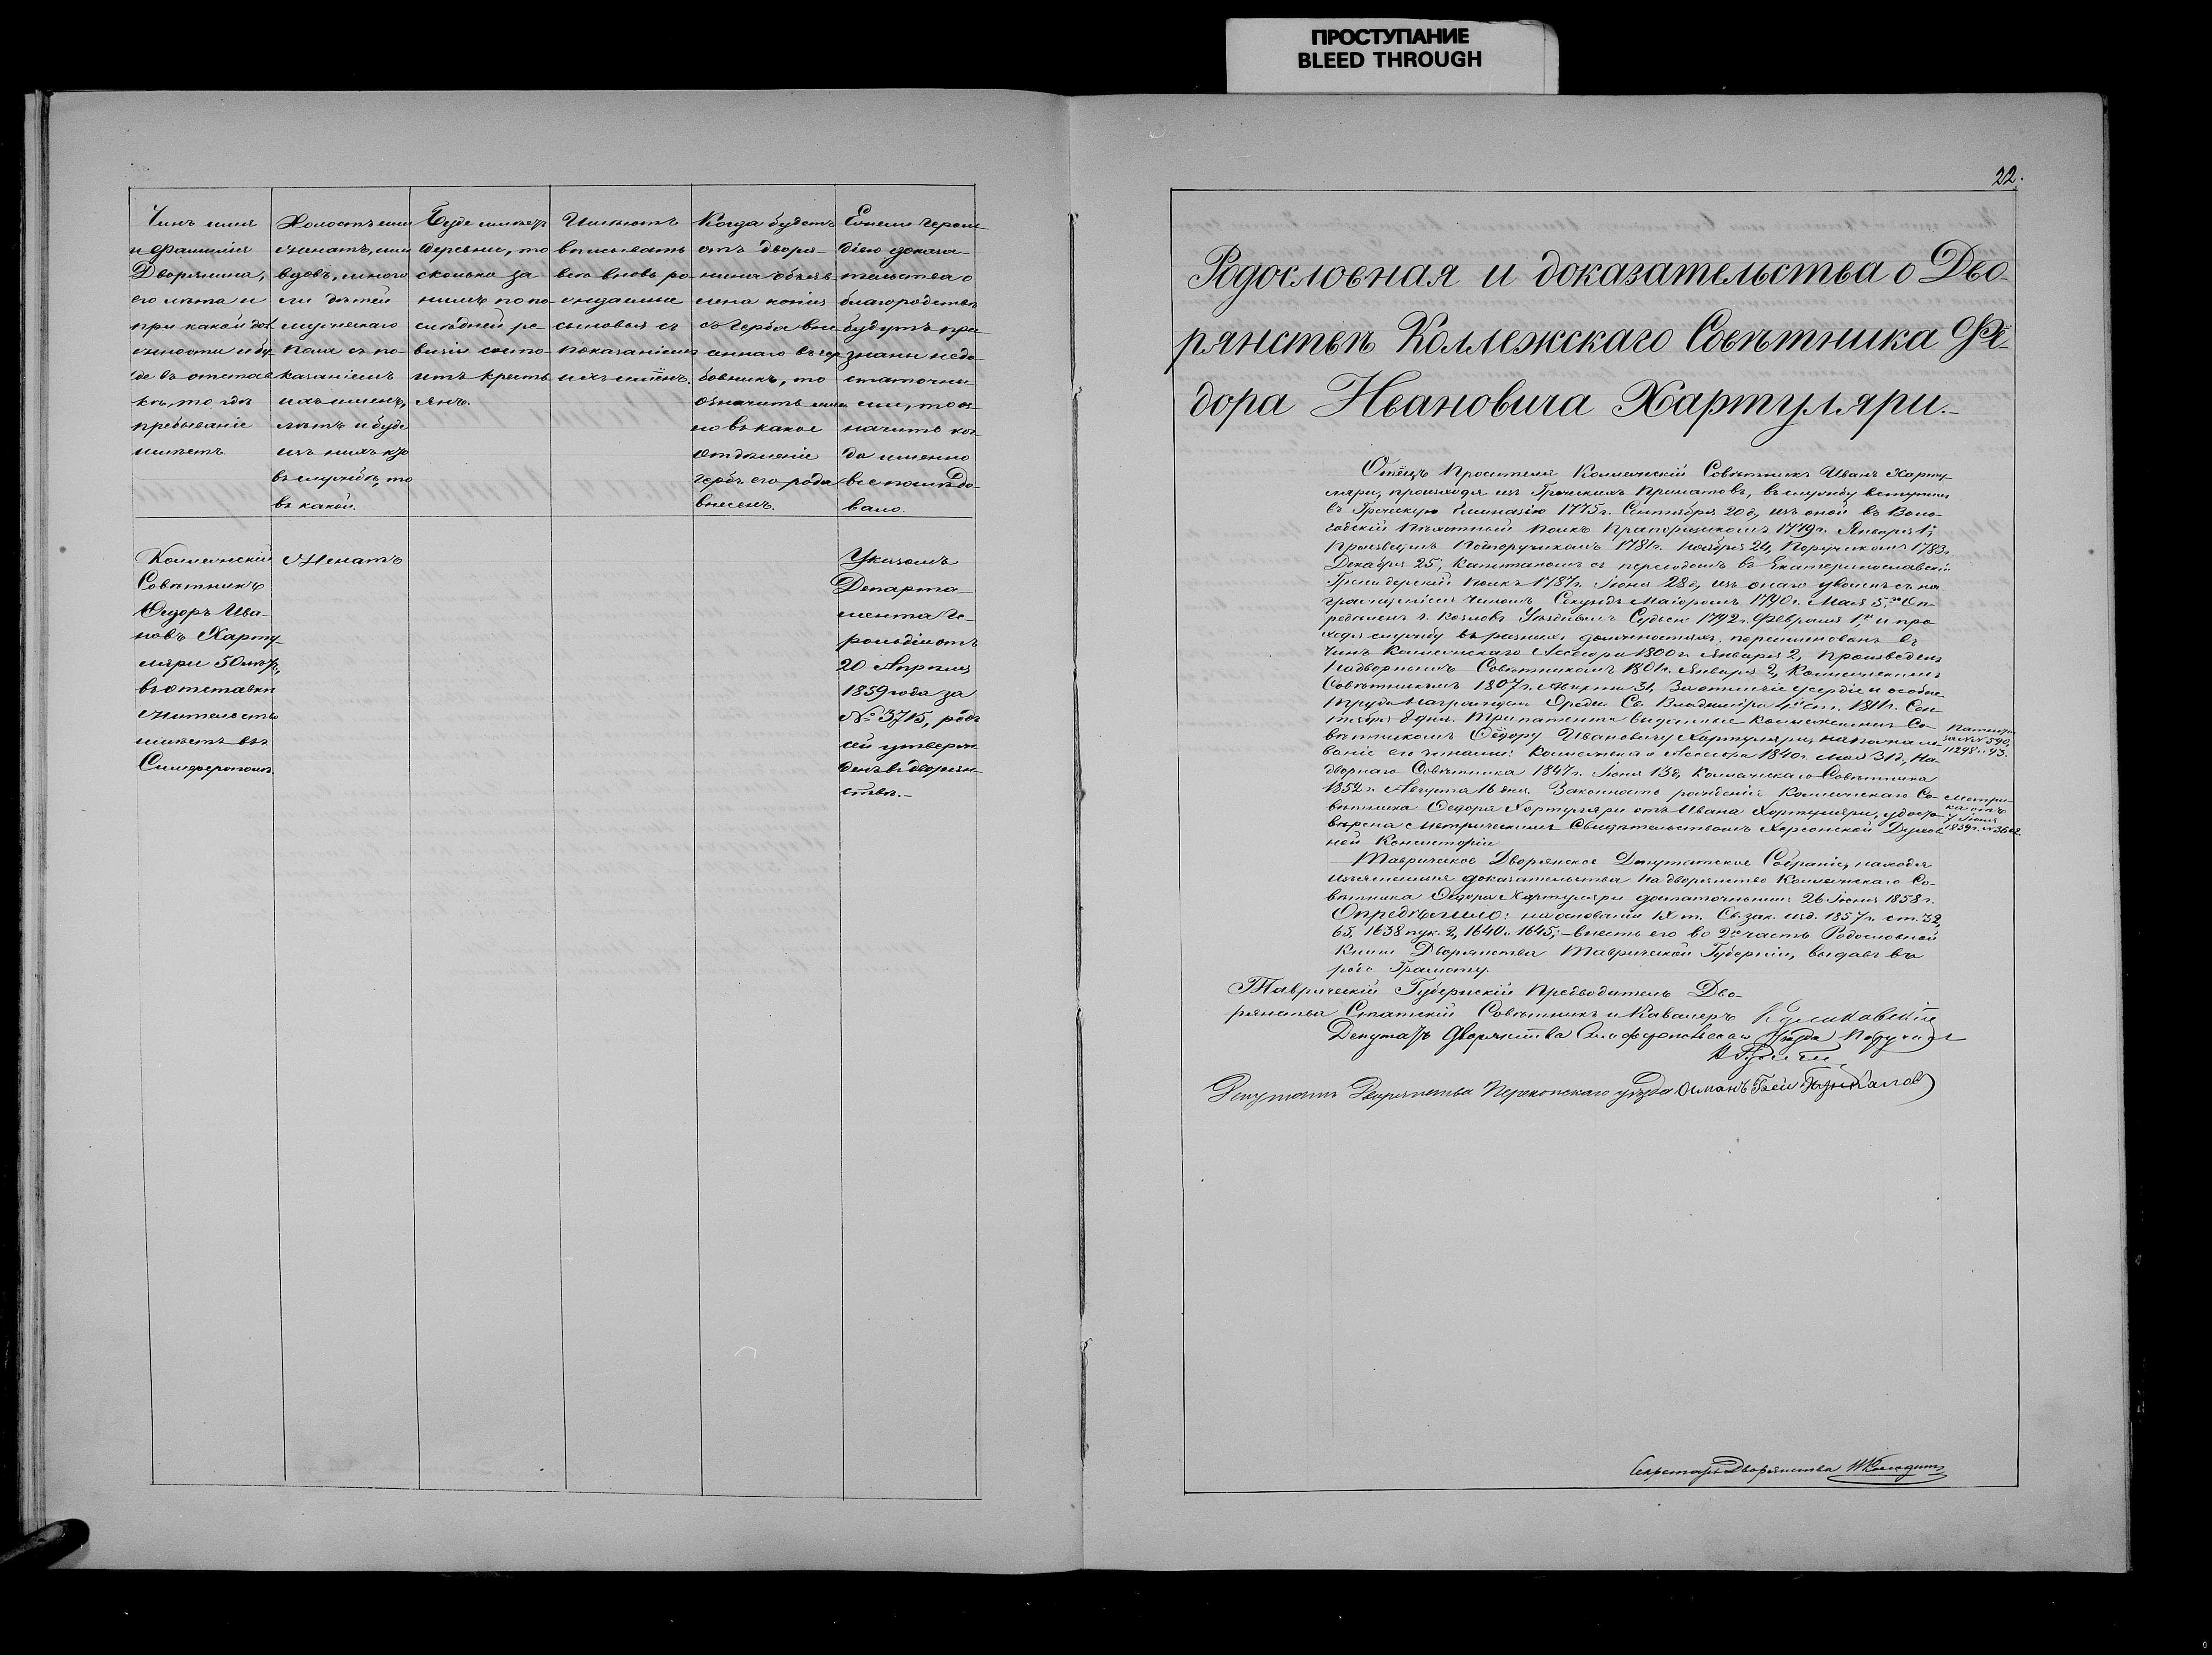 ПРОСТУПАНИЕ
BLEED THROUGH
Чинъ имя
и фамилія
Дворянина,
его лѣта и
при какой дол
жности и бу
де въ отстав
кѣ, то гдѣ
пребываніе
имѣетъ
Холостъ или
женатъ, или
вдовъ, много
ли дѣтей
мужескаго
пола съ по-
казаніемъ
ихъ именъ,
лѣтъ и буде
изъ нихъ кто
въ службѣ, то
въ какой.
Буде имѣетъ
деревни, то
сколько за
нимъ по по-
слѣдней ре-
визіи состо-
итъ кресть
янъ.
Имѣютъ
вписывать
всѣ вновь ро
жденные
сыновья съ
показаніемъ
ихъ имёнъ.
Когда будетъ
отъ дворя-
нина объяв
лена копія
съ Герба вне
сеннаго въ гер
бовникъ, то
означить имен
но въ какое
отдѣленіе
гербъ его рода
внесенъ.
Ежели герол-
діею доказа-
тельства о
благородствѣ
будутъ при
знаны недо-
статочны
ми, то оз-
начить ког
да именно
все послѣдо-
вало.
Коллежскій
Совѣтникъ
Ѳедоръ Ива-
новъ Харту-
ляри 50 лѣтъ,
въ отставкѣ
жительство
имѣетъ въ
Симферополѣ
Женатъ
Указомъ
Департа-
мента Ге-
рольдіи отъ
20 Апрѣля
1859 года за
№ 3715, родъ
сей утверж
денъ въ дворян-
ствѣ.-
22.
Родословная и доказательства о Дво-
рянствѣ Коллежскаго Совѣтника Ѳе-
дора Ивановича Хартуляри.-
Отецъ Просителя Коллежскій Совѣтникъ Иванъ Харту-
ляри, происходя изъ Греческихъ Приматовъ, въ службу вступилъ
въ Греческую Гимназію 1775 г. Сентября 20 д, изъ оной въ Воло-
годскій Пѣхотный Полкъ Прапорщикомъ 1779 г. Января 1,
произведенъ Подпоручикомъ 1781 г. Ноября 24, Поручикомъ 1783 г.
Декабря 25, Капитаномъ съ переводомъ въ Екатеринославскій
Гренадерскій Полкъ 1787 г. Іюня 28 д, изъ онаго уволенъ съ на
гражденіемъ чиномъ Секундъ Маіоромъ 1790 г. Мая 5. Оп-
редѣленъ г. Козловъ Уѣзднымъ Судьею 1792 г. Февраля 1, и про
ходя службу въ разныхъ должностяхъ, переименованъ въ
чинъ Коллежскаго Ассесора 1800 г. Января 2, произведенъ
Надворнымъ Совѣтникомъ 1801 г. Января 2, Коллежскимъ
Совѣтникомъ 1807 г. 31, За отличіе усердіе и особые
труды награжденъ Орденомъ Св. Владиміра 4й ст. 1811 г. Сен-
тября 8 дня. Три патента выданные Коллежскимъ Со-
вѣтникомъ Ѳедору Ивановичу Хартуляри, на пожало-
ваніе его чинами: Коллежскаго Ассесора 1840 г. Мая 31 д, На-
дворнаго Совѣтника 1847 г. Іюня 13 д, Коллежскаго Совѣтника
1852 г. Августа 16 дня. Законность рожденія Коллежскаго Со-
вѣтника Ѳедора Хартуляри отъ Ивана Хартуляри, удосто-
вѣрена Метрическимъ Свидѣтельствомъ Херсонской Духов
ной Консисторіи
Патенты
за №№ 590,
11298 и 93.
Метри-
ка отъ
7 Іюня
1839 г. № 3662.
Таврическое Дворянское Депутатское Собраніе, находя
изъясненныя доказательства на дворянство Коллежскаго Со-
вѣтника Ѳедора Хартуляри достаточными: 26 Іюня 1858 г.
Опредѣлило: на основаніи IX т. Св. зак. изд. 1857 г. ст. 32,
65, 1638 пук. 2, 1640 и 1645,- внесть его во 2ю часть Родословной
Книги Дворянства Таврической Губерніи, выдавъ въ
родъ Грамоту.
Таврическій Губернскій Предводитель Дво-
рянства Статскій Совѣтникъ и Кавалеръ
Депутатъ Дворянства Симферопольскаго Уѣзда Поручикъ
Депутатъ Дворянства Перекопскаго уѣзда Османъ Бей
Секретарь Дворянства